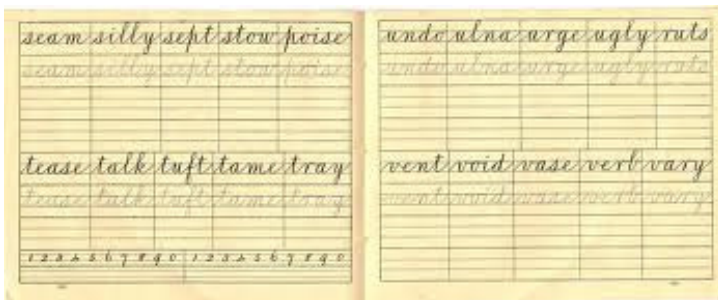 seam silly sept stow poise
seam silly sept stow poise
tease talk tuft tame tray
tease talk tuft tame tray
1 2 3 4 5 6 7 8 9 0 1 2 3 4 5 6 7 8 9 0
undo ulna urge ugly ruts
undo ulna urge ugly ruts
vent void vase verb vary
vent void vase verb vary